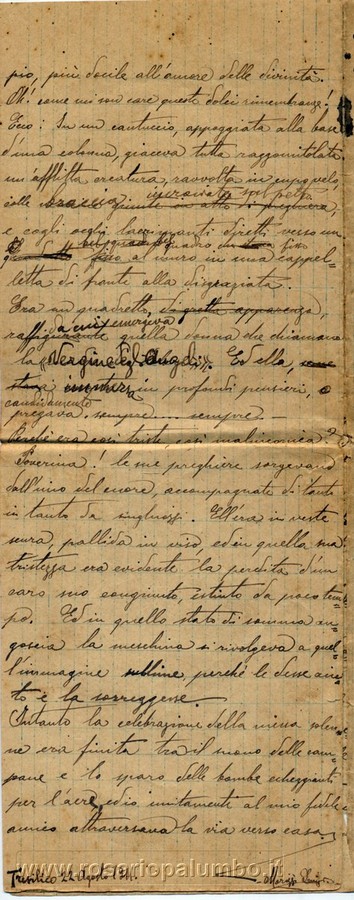 pio, più docile all'amore delle divinità.
Oh! come mi son care queste dolci rimembranze!
Ecco: In un cantuccio, appoggiata alla base
d'una colonna, giaceva tutta raggomitolata
un'afflitta creatura, ravvolta in cupo velo
colle braccia incrociate sul petto
e cogli occhi lacrimanti diretti verso un
quadro fisso al muro in una cappel=
letta di fronte alla disgraziata.
Era un quadretto, di gretta apparenza,
a cui emergeva
raffigurante quella donna che chiamano
la "Vergine degl'Angeli". Ed ella,
immersa in profondi pensieri, e
candidamente
pregava sempre.... sempre.—
Perchè era così triste, così malinconica?
Poverina! le sue preghiere sorgevano
dall'imo del cuore, accompagnate di tanto
in tanto da singhiozzi. Ell'era in veste
scura, pallida in viso, ed in quella sua
tristezza era evidente la perdita d'un
caro suo congiunto, estinto da poco tem
po. Ed in quello stato di somma an
goscia la meschina si rivolgeva a quel
l'immagine sublime, perchè le desse aiu
to e la sorreggesse.
Intanto la celebrazione della messa solen
ne era finita tra il suono delle cam
pane e lo sparo delle bombe echeggianti
per l'aere, ed io unitamente al mio fedele
amico attraversava la via verso casa
22 Agosto
www.rosariopalumbo.it